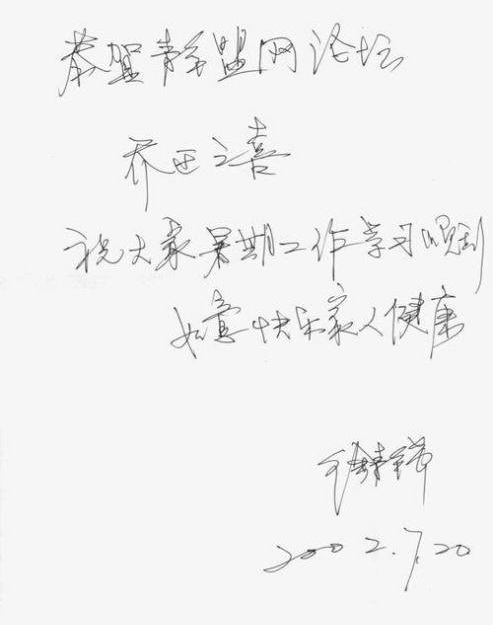 恭贺 盟网论坛
乔迁之喜
祝大家暑期工作学习顺利
如意快乐家人健康
2002.7.20